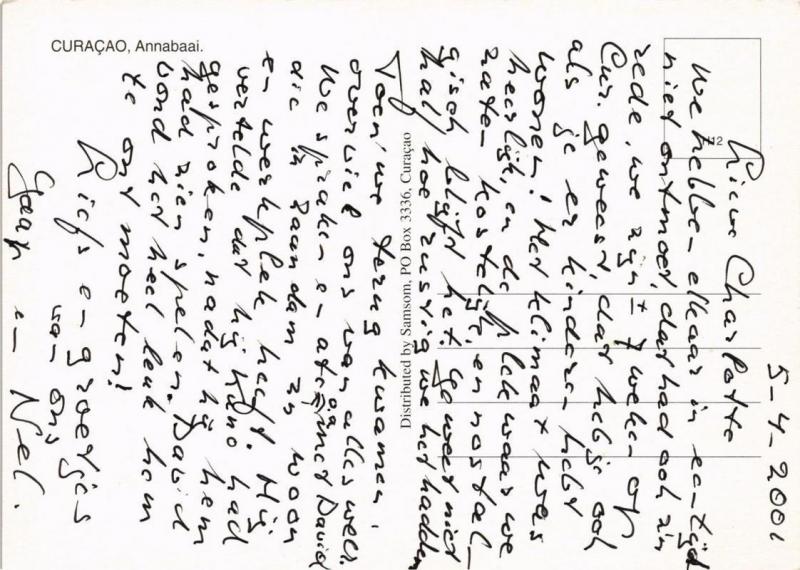 CURAÇAO, Annabaai.
Distributed by Samsom, PO Box 3336, Curaçao
112
5-4-2001
Lieve Charlotte
We hebben elkaar in een tijd
niet ontmoet, dat had ook z'n
rede, we zijn ± 7 weken op
Cur. geweest, dat heb je ook
als je er kinderen hebt
wonen! Het klimaat was
heerlijk, en de plek waar we
zaten kostelijk, en nostal-
gisch blijft het. Je weet niet
half hoe rustig we het hadden
Toen we terug kwamen,
overviel ons van alles weer.
We spraken en aten o.a. met David
die in Zaandam zn woon
en werkplek heeft. Hij
vertelde dat hij Juno had
gesproken, nadat hij hem
had zien spelen. David
vond het heel leuk hem
te ontmoeten!
Liefs en groetjes
van ons
Jaap en Nel.